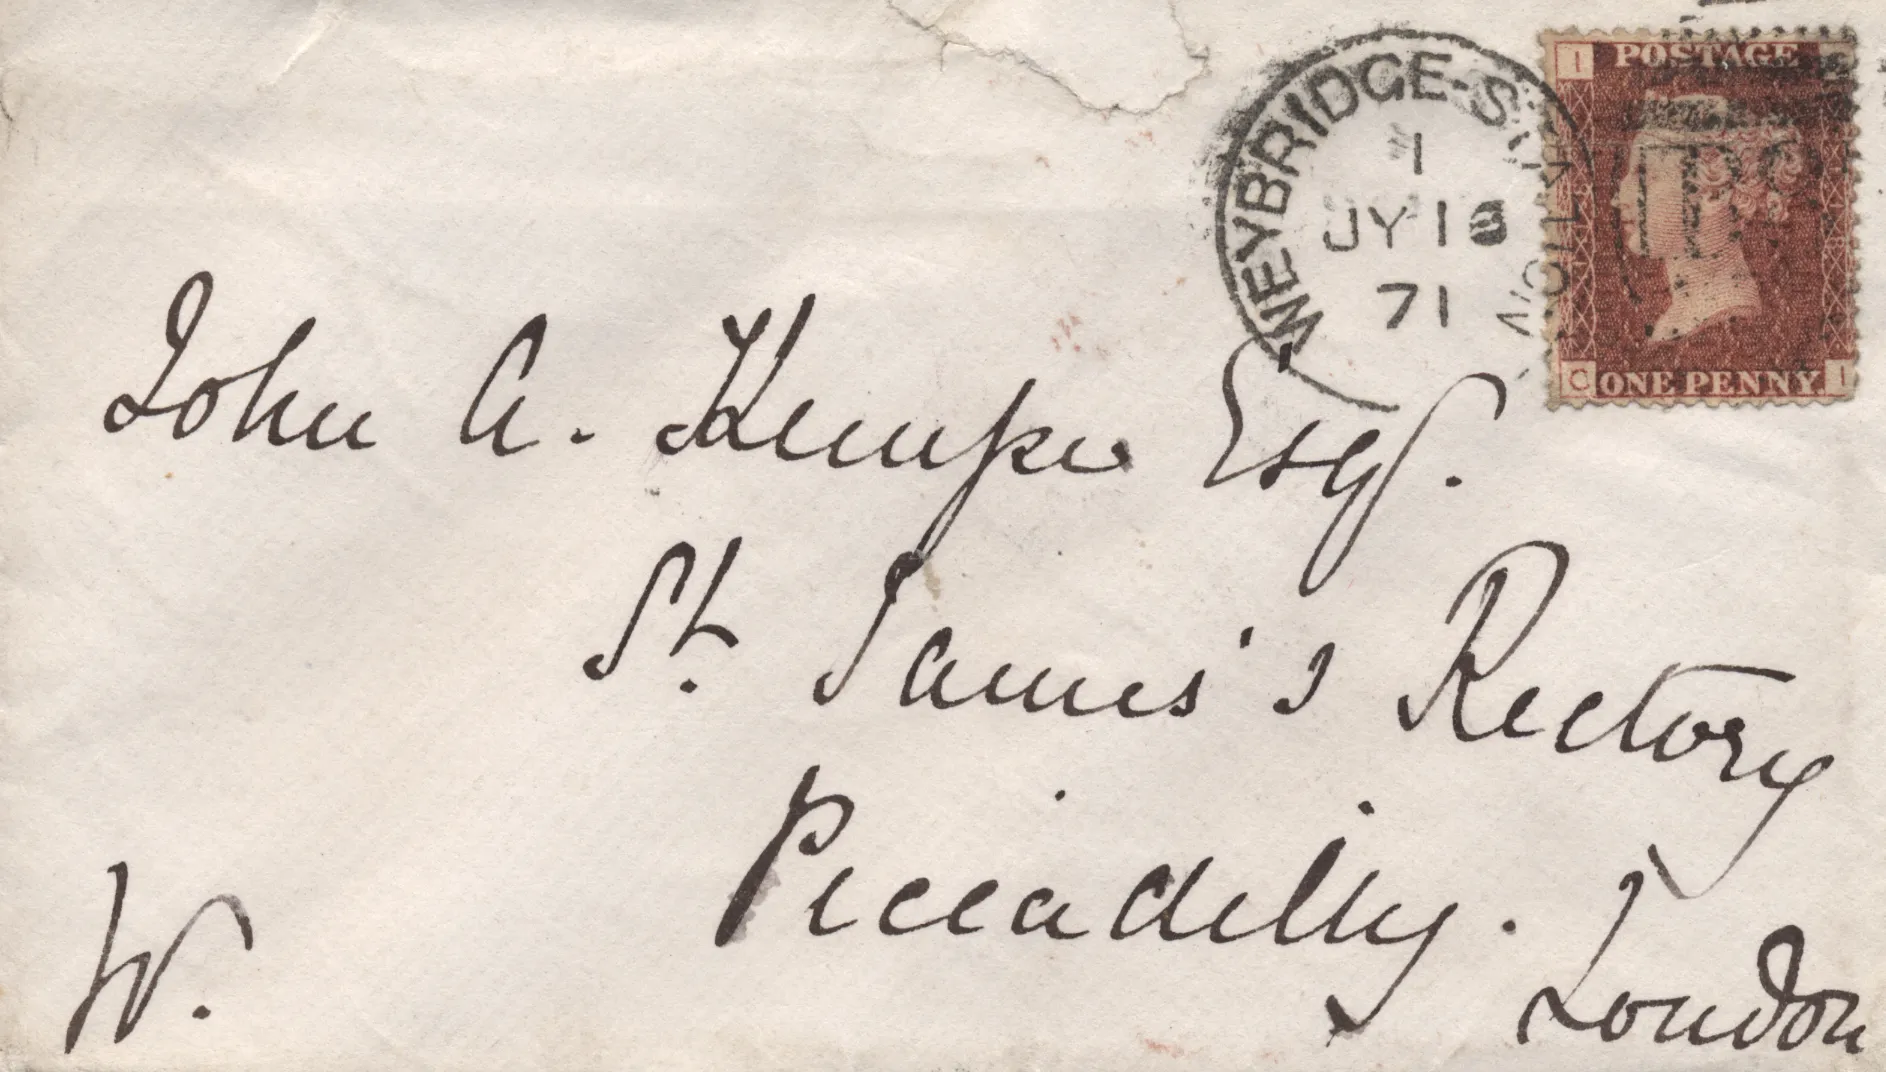 POSTAGE
I
WEYBRIDGE-STATION
1
JY 18
71
C ONE PENNY I
John A. Kempe Esqr.
St. James's Rectory
Piccadilly.
London
W.